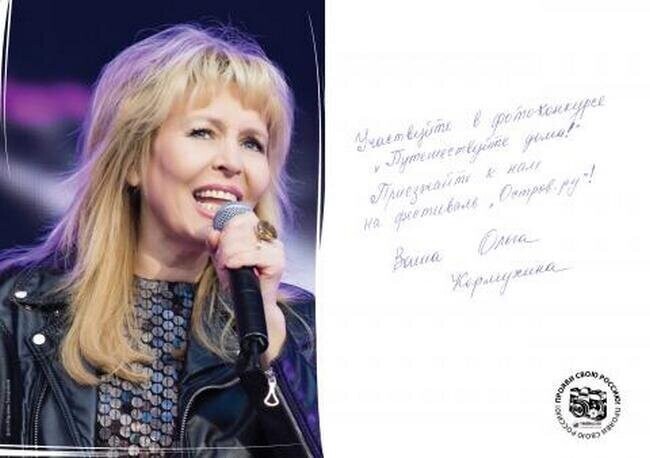 Участвуйте в фотоконкурсе
"Путешествуйте дома!"
Приезжайте к нам
на фестиваль "Остров.ру"!
Ваша Ольга
Кормухина
ПРОЯВИ СВОЮ РОССИЮ! ПРОЯВИ СВОЮ РОССИЮ!